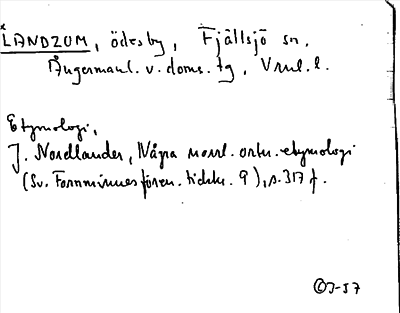 *LANDZUM, ödesby, Fjällsjö sn,
Ångermanl. v. doms. tg, Vnrl. l.
Etymologi,
J. Nordlander, Några norrl. ortn. etymologi
(Sv. Fornminnesfören. tidskr. 9), s. 317 f.
©J-57